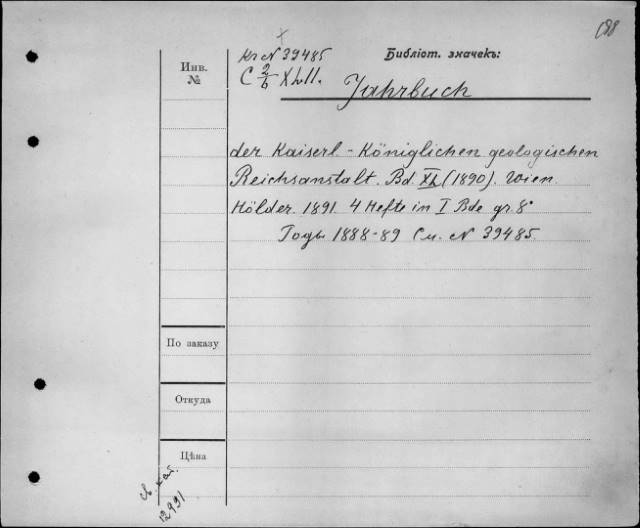 188
Кг N 39485
Библіот. значекъ:
Инв.
№
C 2/6 XLII.
Jahrbuch
der Kaiserl.-Königlichen geologischen
Reichsanstalt. Bd. XL (1890). Wien.
Hölder. 1891. 4 Hefte in I Bde gr. 8°
Годы 1888-89 См. N 39485.
По заказу
Откуда
Цѣна
12991